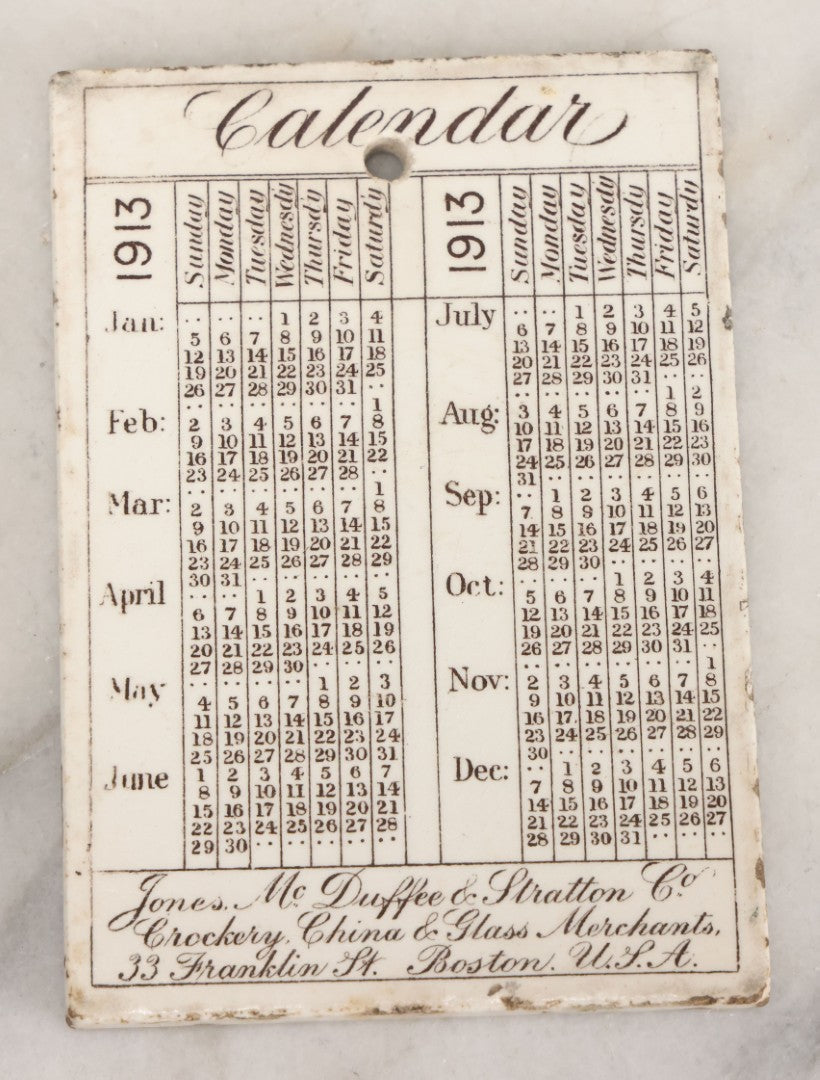 Calendar
1913 Sunday Monday Tuesday Wednesdy Thursdy Friday Saturdy
Jan: .. .. .. 1 2 3 4
5 6 7 8 9 10 11
12 13 14 15 16 17 18
19 20 21 22 23 24 25
26 27 28 29 30 31 ..
.. .. .. .. .. .. 1
Feb: 2 3 4 5 6 7 8
9 10 11 12 13 14 15
16 17 18 19 20 21 22
23 24 25 26 27 28 ..
.. .. .. .. .. .. 1
Mar: 2 3 4 5 6 7 8
9 10 11 12 13 14 15
16 17 18 19 20 21 22
23 24 25 26 27 28 29
30 31 .. .. .. .. ..
April .. .. 1 2 3 4 5
6 7 8 9 10 11 12
13 14 15 16 17 18 19
20 21 22 23 24 25 26
27 28 29 30 .. .. ..
May .. .. .. .. 1 2 3
4 5 6 7 8 9 10
11 12 13 14 15 16 17
18 19 20 21 22 23 24
25 26 27 28 29 30 31
June 1 2 3 4 5 6 7
8 9 10 11 12 13 14
15 16 17 18 19 20 21
22 23 24 25 26 27 28
29 30 .. .. .. .. ..
1913 Sunday Monday Tuesday Wednesdy Thursdy Friday Saturdy
July .. .. 1 2 3 4 5
6 7 8 9 10 11 12
13 14 15 16 17 18 19
20 21 22 23 24 25 26
27 28 29 30 31 .. ..
.. .. .. .. .. 1 2
Aug: 3 4 5 6 7 8 9
10 11 12 13 14 15 16
17 18 19 20 21 22 23
24 25 26 27 28 29 30
31 .. .. .. .. .. ..
Sep: .. 1 2 3 4 5 6
7 8 9 10 11 12 13
14 15 16 17 18 19 20
21 22 23 24 25 26 27
28 29 30 .. .. .. ..
Oct: .. .. .. 1 2 3 4
5 6 7 8 9 10 11
12 13 14 15 16 17 18
19 20 21 22 23 24 25
26 27 28 29 30 31 ..
.. .. .. .. .. .. 1
Nov: 2 3 4 5 6 7 8
9 10 11 12 13 14 15
16 17 18 19 20 21 22
23 24 25 26 27 28 29
30 .. .. .. .. .. ..
Dec: .. 1 2 3 4 5 6
7 8 9 10 11 12 13
14 15 16 17 18 19 20
21 22 23 24 25 26 27
28 29 30 31 .. .. ..
Jones, Mc Duffee & Stratton Co
Crockery, China & Glass Merchants,
33 Franklin St. Boston. U.S.A.